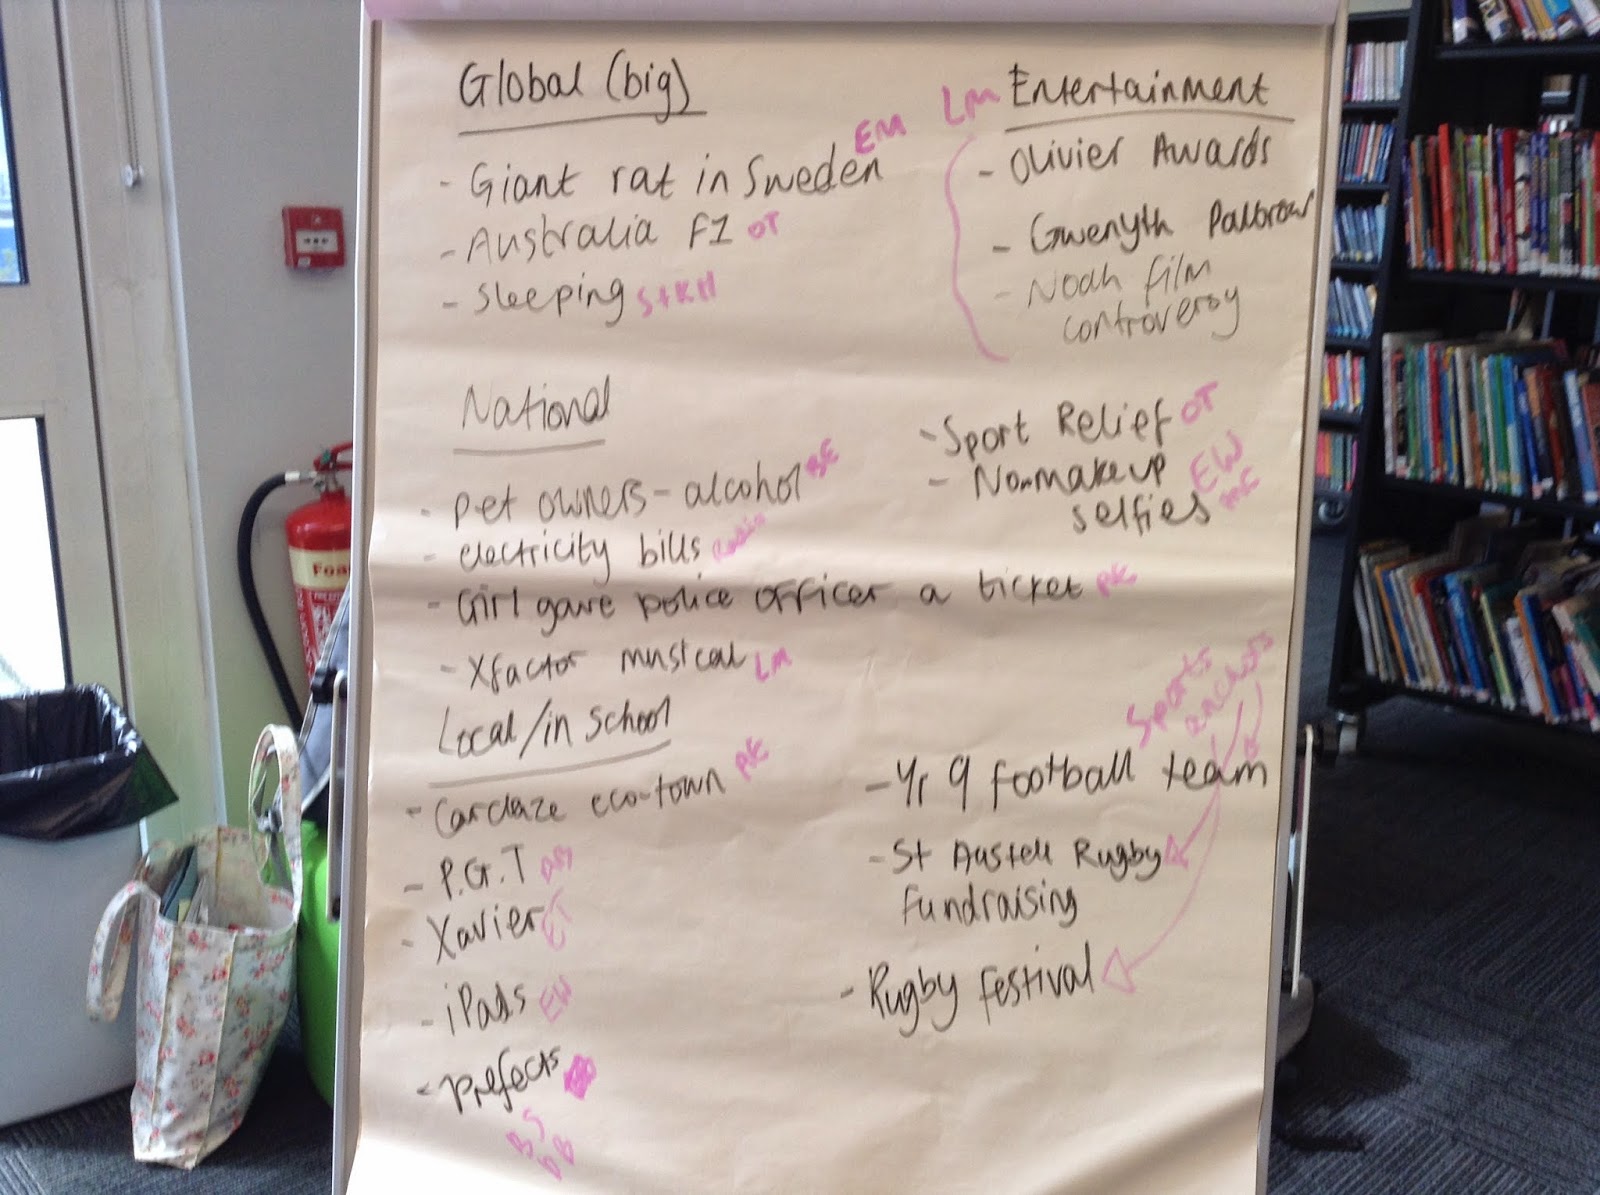 Global (big)
- Giant rat in Sweden EM
- Australia F1 OT
- Sleeping S+KH
LM Entertainment
- Olivier Awards
- Gwenyth Paltrow
- Noah film
controversy
National
- pet owners - alcohol BE
- electricity bills Radio
- Girl gave police officer a ticket PK
- Xfactor musical LM
- Sport Relief OT
- No makeup EW
selfies
Local/in School
- Carclaze eco-town PK
- P.G.T
- Xavier
- iPads EW
- prefects
Sports
anchors
- Yr 9 football team
- St Austell Rugby
fundraising
- Rugby festival
Foa